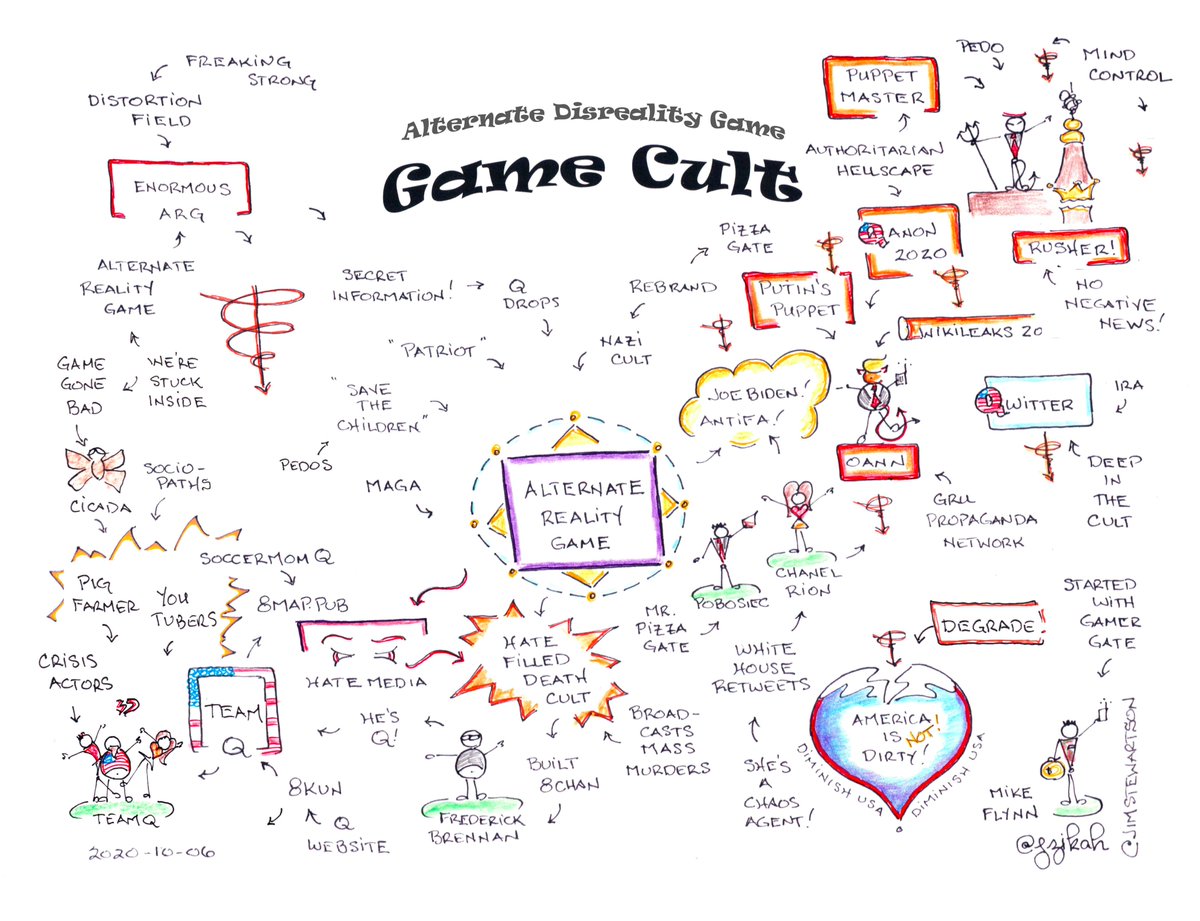 Alternate Disreality Game
Game Cult
FREAKING
STRONG
DISTORTION
FIELD
ENORMOUS
ARG
ALTERNATE
REALITY
GAME
GAME
GONE
BAD
WE'RE
STUCK
INSIDE
CICADA
SOCIO-
PATHS
PIG
FARMER
YOU
TUBERS
CRISIS
ACTORS
TEAM Q
2020-10-06
TEAM
Q
8KUN
Q
WEBSITE
SOCCERMOM Q
8MAP.PUB
HATE MEDIA
HE'S
Q!
FREDERICK
BRENNAN
BUILT
8CHAN
HATE
FILLED
DEATH
CULT
BROAD-
CASTS
MASS
MURDERS
SECRET
INFORMATION!
Q
DROPS
"PATRIOT"
"SAVE
THE
CHILDREN"
PEDOS
MAGA
ALTERNATE
REALITY
GAME
PIZZA
GATE
REBRAND
NAZI
CULT
JOE BIDEN!
ANTIFA!
PUPPET
MASTER
AUTHORITARIAN
HELLSCAPE
QANON
2020
PUTIN'S
PUPPET
WIKILEAKS 20
PEDO
MIND
CONTROL
RUSHER!
NO
NEGATIVE
NEWS!
QWITTER
IRA
DEEP
IN
THE
CULT
OANN
GRU
PROPAGANDA
NETWORK
POBOSIEC
CHANEL
RION
MR.
PIZZA
GATE
WHITE
HOUSE
RETWEETS
SHE'S
A
CHAOS
AGENT!
DEGRADE!
AMERICA
IS NOT!
DIRTY!
DIMINISH USA
DIMINISH USA
STARTED
WITH
GAMER
GATE
Q
MIKE
FLYNN
@gzjkah
©JIMSTEWARTSON